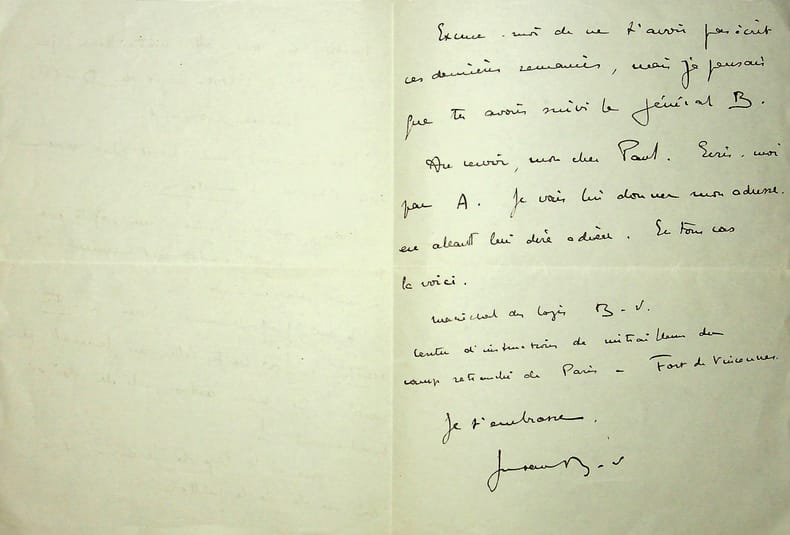 Excuse-moi de ne t'avoir pas écrit
ces dernières semaines, mais je pensais
que tu avais suivi le général B.
Au revoir, mon cher Paul. Ecris-moi
par A. Je vais lui donner mon adresse
en allant lui dire adieu. En tous cas
la voici.
Maréchal des logis B-V.
Centre d'instruction de mitrailleurs du
camp retranché de Paris - Fort de Vincennes.
Je t'embrasse.
B-V